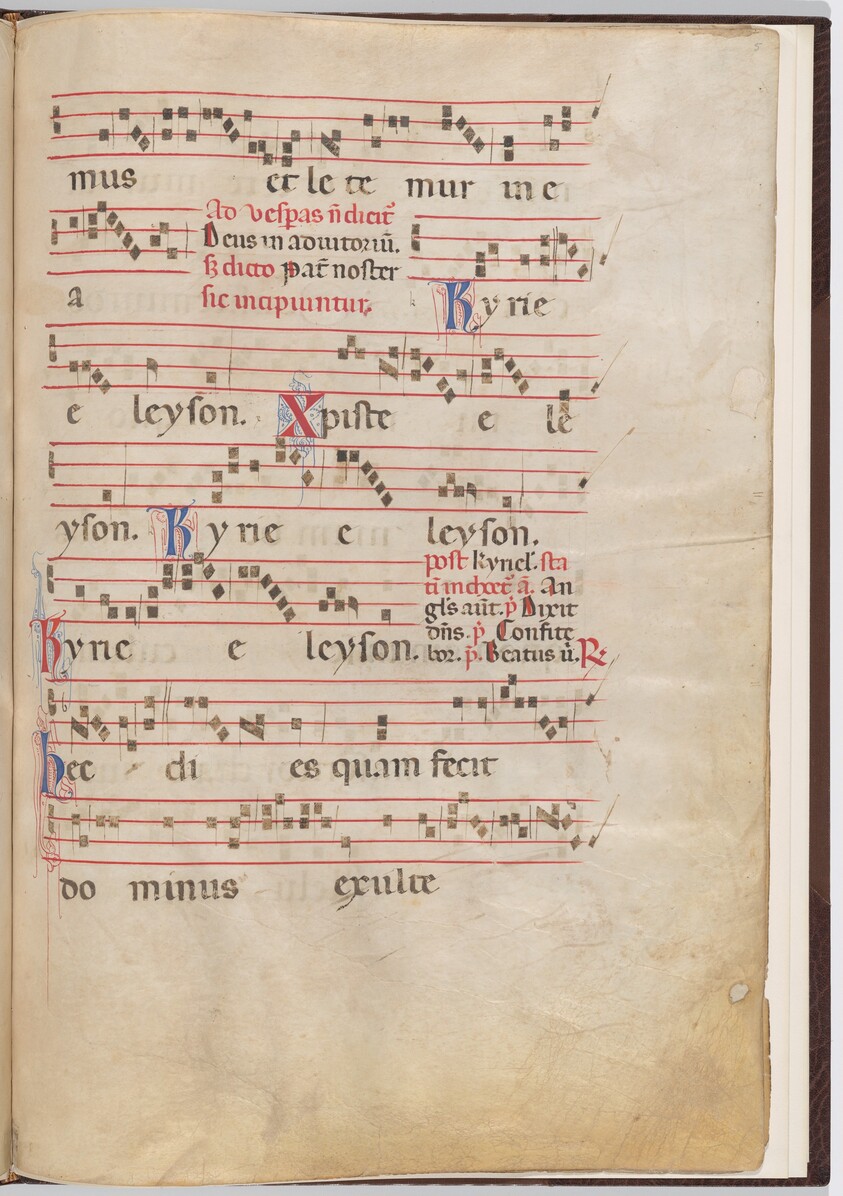 mus et le te mur in e
Ad vesꝑas n̄ dicit᷑
Deus in adiutoriū.
sꝫ dicto pat̄ noster
a sic incipiuntur. Kyrie
e leyson. Xpiste e le
yson. Kyrie e leyson.
post kyriel̓. sta
tī inchoet᷑ a̅. An
gl̓s aūt. p̄ Dixit
dn̄s. p̄ Confite
Kyrie e leyson. bor. p̄. Beatus ū. R̷
hec di es quam fecit
do minus exulte